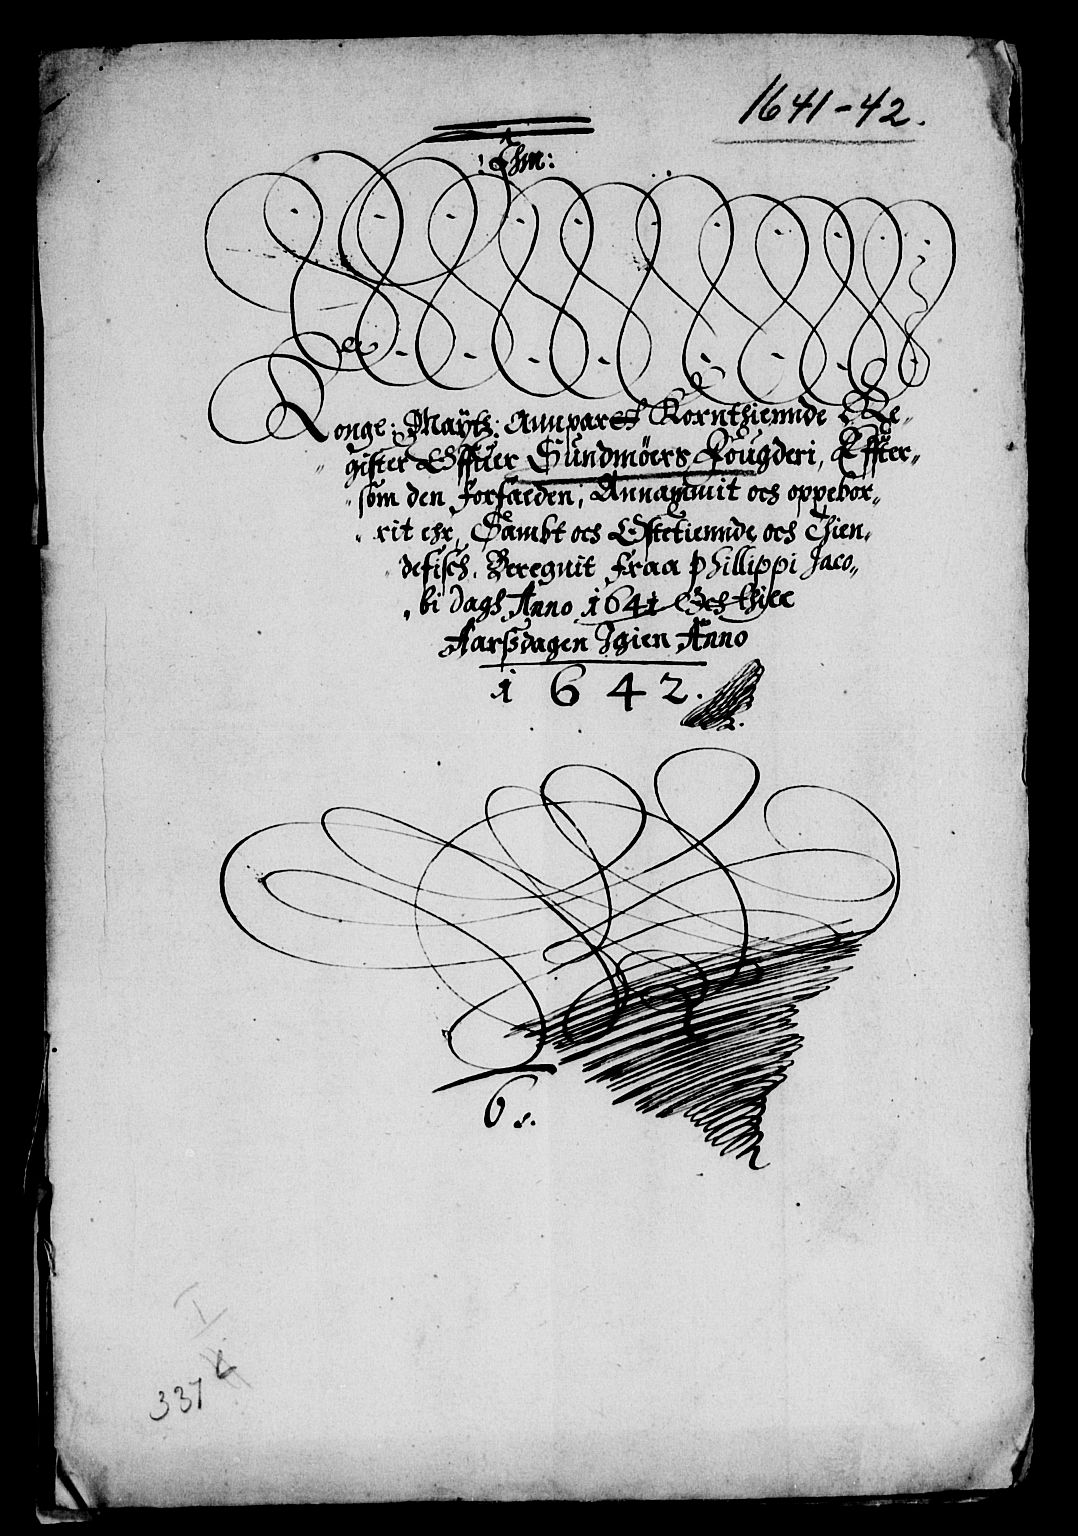 1641-42.
:Ihm:
Konge: Maÿtz: Annpart Kornthiennde Re-
gister Offuer Sundmöers Fougderi, Effter-
som den forfalden, Annammit och oppebor-
rit ehr, Sambt och Ostetiennde och Thien-
defisch. Beregnit Fraa Phillippi Jaco-
bi dagh Anno 1641 Och thill
Aarssdagen Igien Anno
1642.
6
337